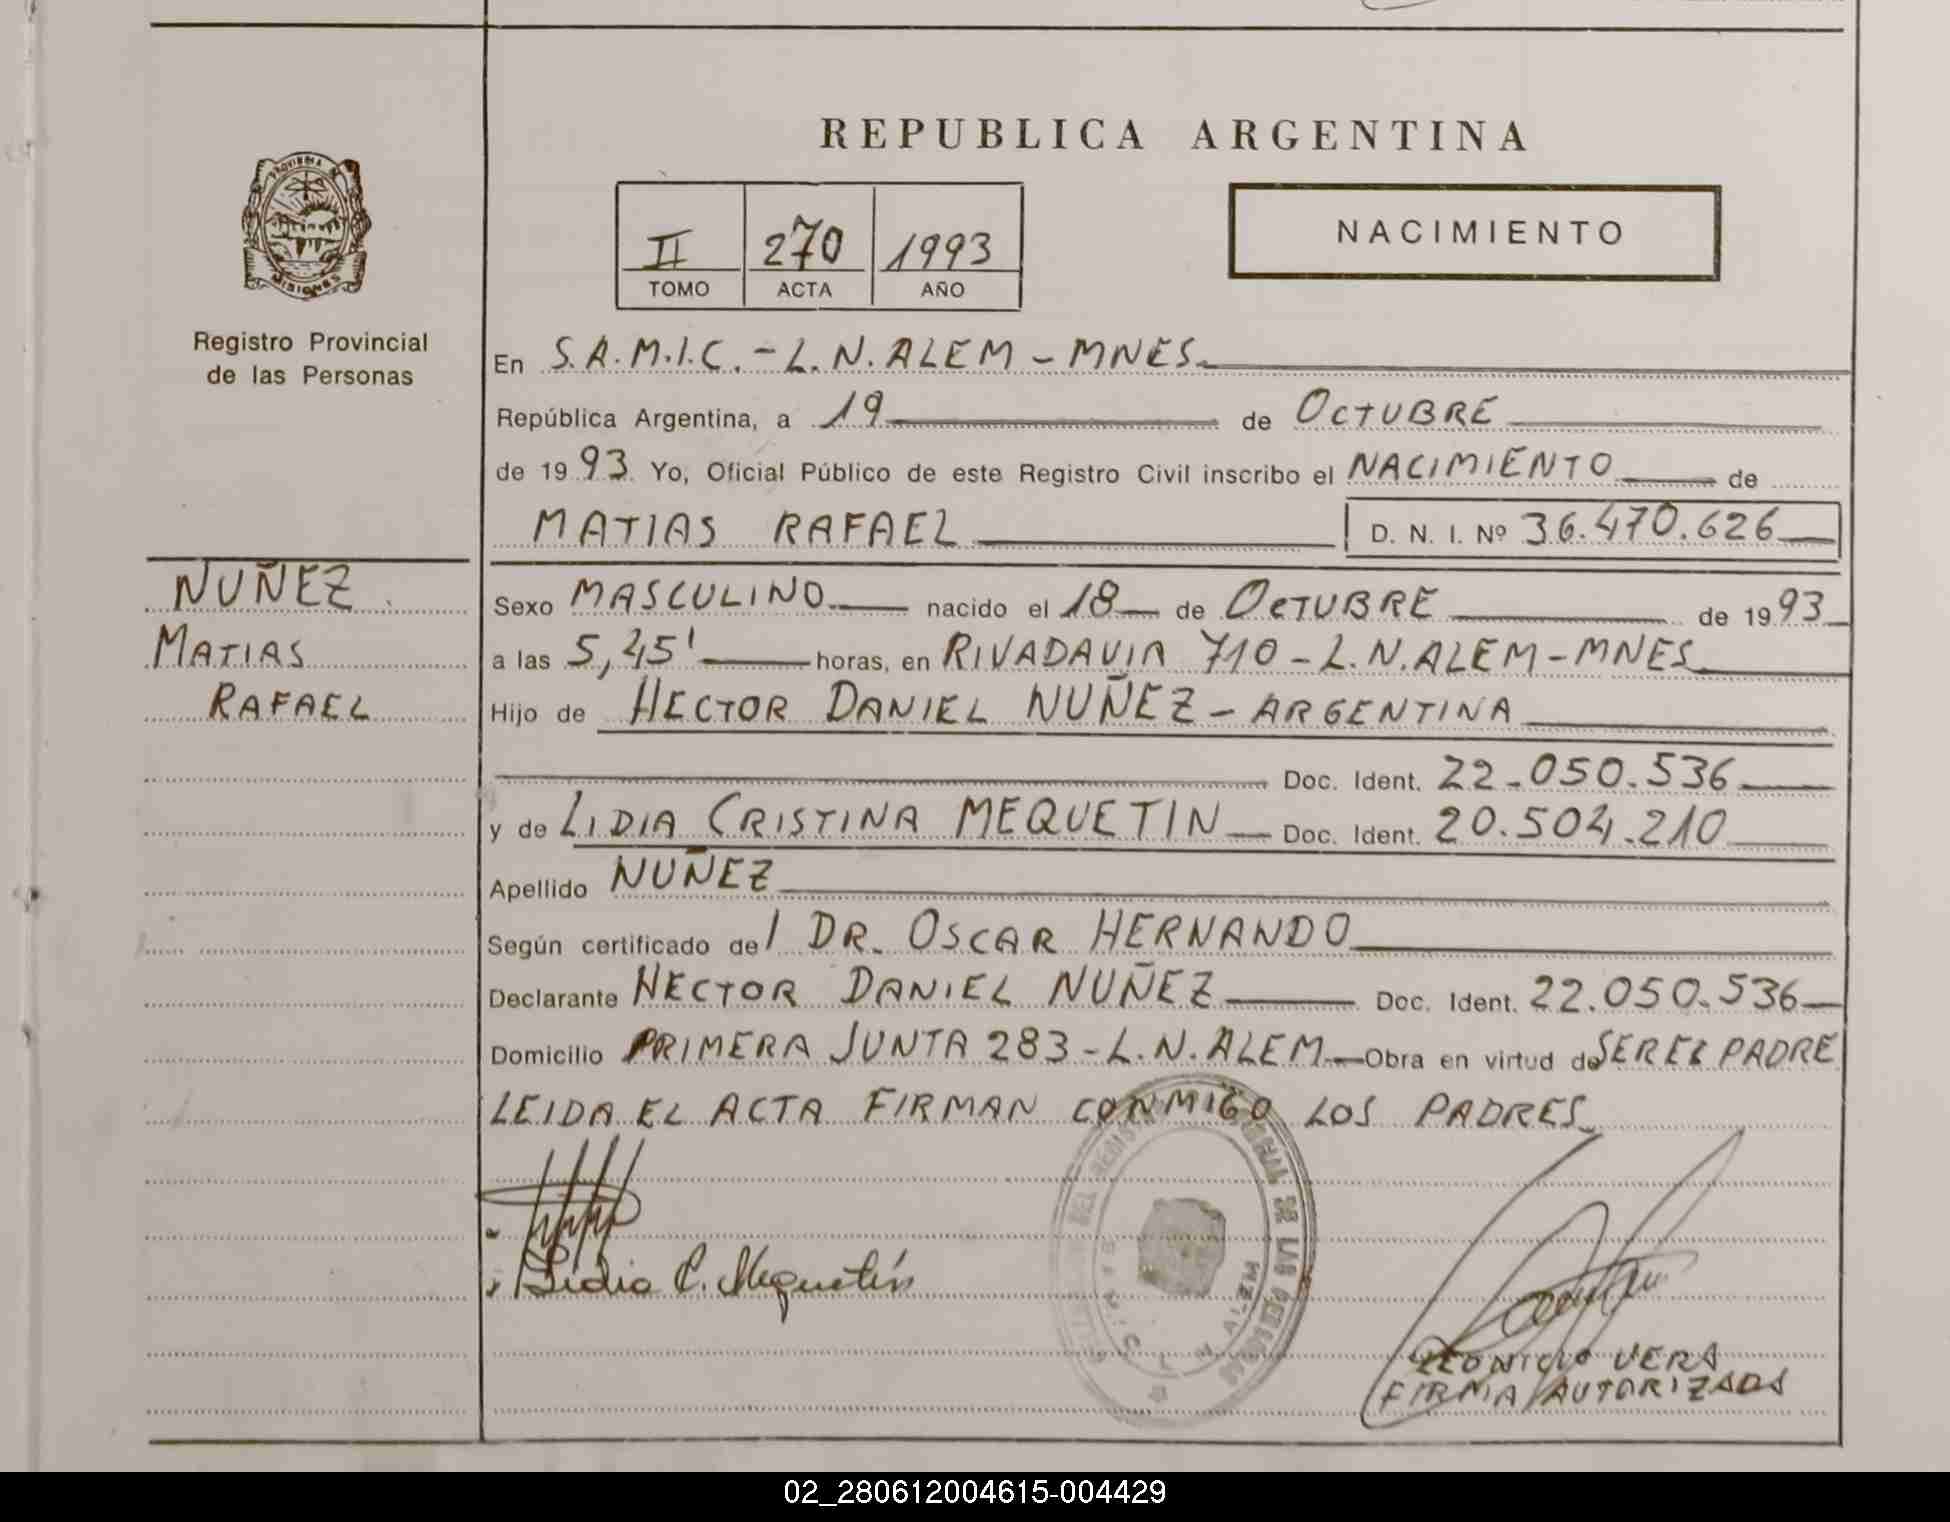 REPUBLICA ARGENTINA
PROVINCIA DE
MISIONES
Registro Provincial
de las Personas
II 270 1993
TOMO ACTA AÑO
NACIMIENTO
En S.A.M.I.C. - L.N. ALEM - MNES
República Argentina, a 19 de OCTUBRE
de 1993 Yo, Oficial Público de este Registro Civil inscribo el NACIMIENTO de
MATIAS RAFAEL D. N. I. Nº 36.470.626
NUÑEZ
MATIAS
RAFAEL
Sexo MASCULINO nacido el 18 de OCTUBRE de 1993
a las 5,45' horas, en RIVADAVIA 710 - L.N. ALEM - MNES
Hijo de HECTOR DANIEL NUÑEZ - ARGENTINA
Doc. Ident. 22.050.536
y de LIDIA CRISTINA MEQUETIN Doc. Ident. 20.504.210
Apellido NUÑEZ
Según certificado del DR. OSCAR HERNANDO
Declarante HECTOR DANIEL NUÑEZ Doc. Ident. 22.050.536
Domicilio PRIMERA JUNTA 283 - L.N. ALEM Obra en virtud de SER EL PADRE
LEIDA EL ACTA FIRMAN CONMIGO LOS PADRES
Lidia C. Mequetín
DEL REGISTRO DE LAS PERSONAS
LEONICIO VERA
FIRMA AUTORIZADA
02_280612004615-004429